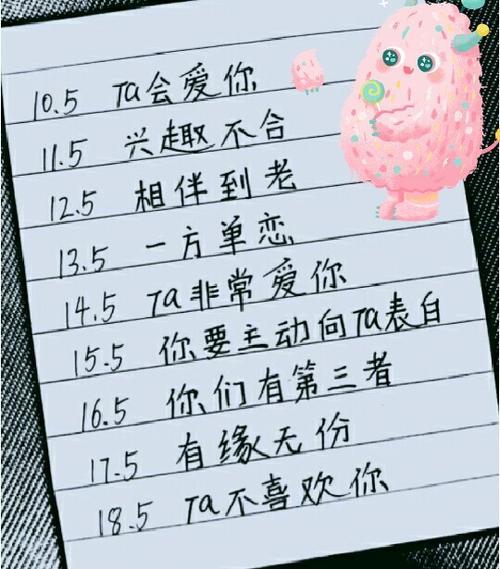 10.5 Ta会爱你
11.5 兴趣不合
12.5 相伴到老
13.5 一方单恋
14.5 Ta非常爱你
15.5 你要主动向Ta表白
16.5 你们有第三者
17.5 有缘无份
18.5 Ta不喜欢你